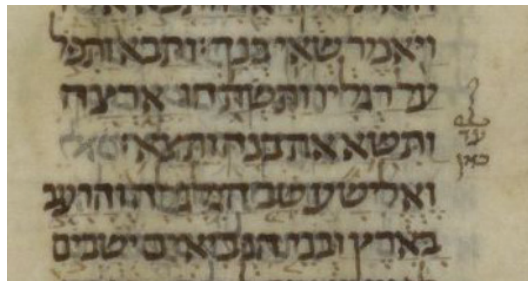 ויאמר שאי בנך: ותבא ותפל
על רגליו ותשתחו ארצה
ותשא את בנה ותצא:
עד
כאן
ואלישע שב הגלגלה והרעב
בארץ ובני הנביאים ישבים